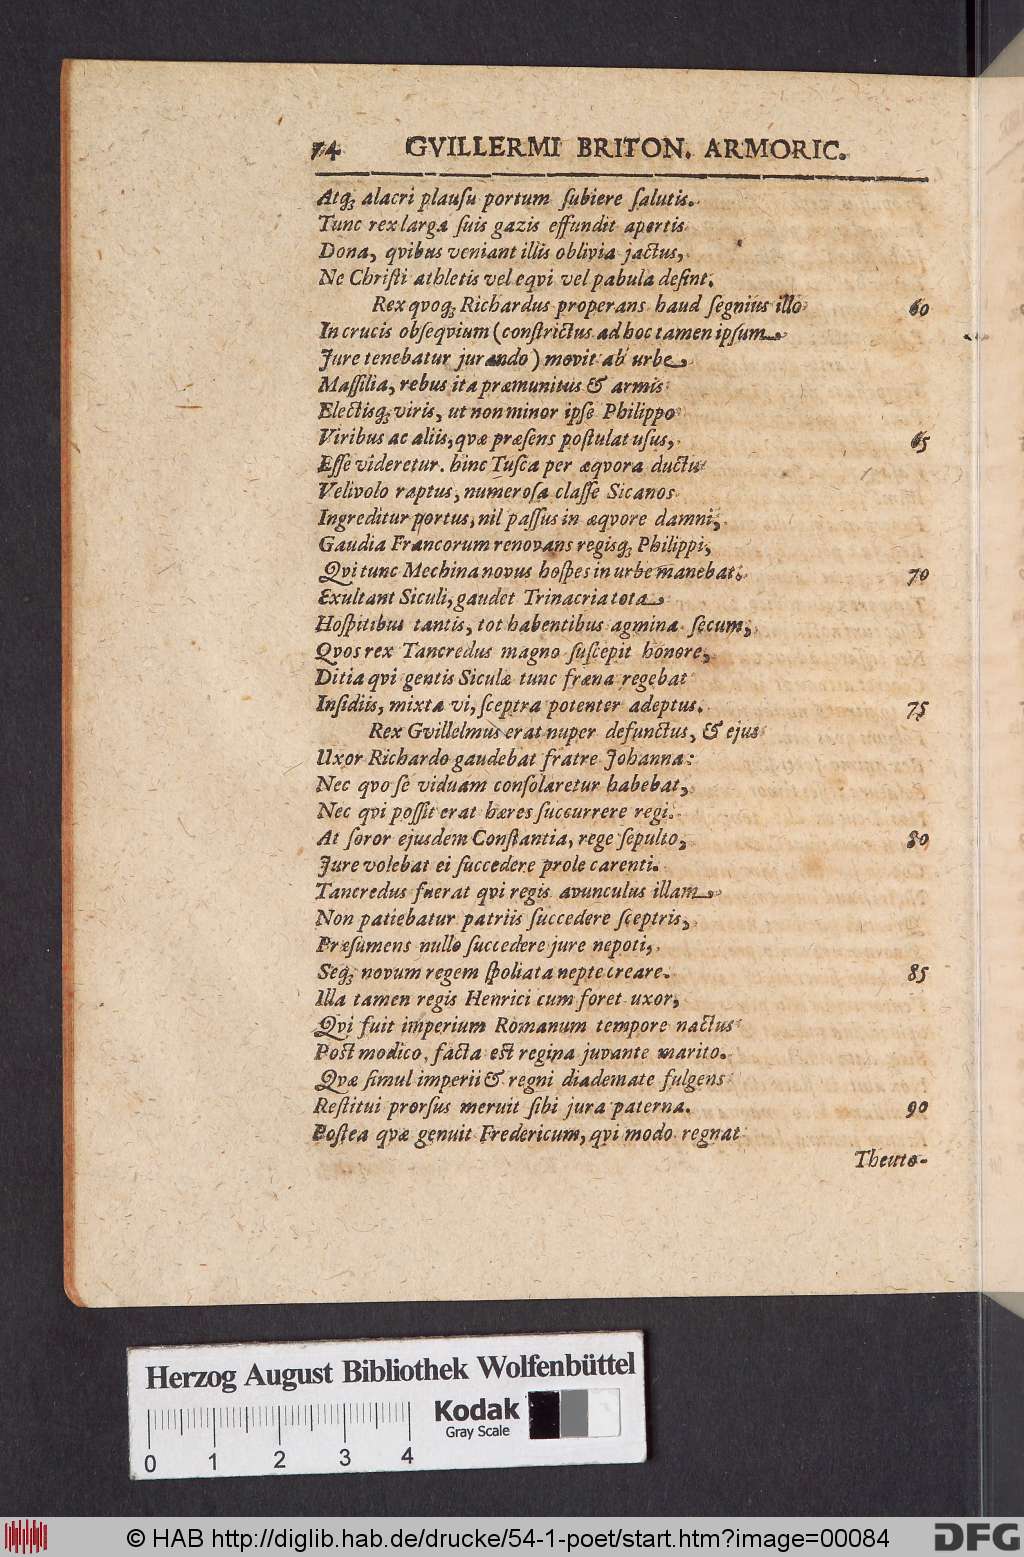 74 GVILLERMI BRITON. ARMORIC.
Atq; alacri plauſu portum ſubiere ſalutis.
Tunc rex larga ſuis gazis effundit apertis
Dona, qvibus veniant illis oblivia jactus,
Ne Chriſti athletis vel eqvi vel pabula deſint.
Rex quoq; Richardus properans haud ſegnius illo 60
In crucis obſeqvium (conſtrictus ad hoc tamen ipſum
Jure tenebatur jurando) movit ab urbe
Maſſilia, rebus ita præmunitus & armis
Electisq; viris, ut non minor ipſe Philippo
Viribus ac aliis, qvæ præſens poſtulat uſus, 65
Eſſe videretur. hinc Tuſca per æqvora ductu
Velivolo raptus, numeroſa claſſe Sicanos
Ingreditur portus, nil paſſus in æqvore damni,
Gaudia Francorum renovans regisq; Philippi,
Qvi tunc Mechina novus hoſpes in urbe manebat. 70
Exultant Siculi, gaudet Trinacria tota
Hoſpitibus tantis, tot habentibus agmina ſecum,
Qvos rex Tancredus magno ſuſcepit honore,
Ditia qvi gentis Siculæ tunc fræna regebat
Inſidiis, mixta vi, ſceptra potenter adeptus. 75
Rex Gvillelmus erat nuper defunctus, & ejus
Uxor Richardo gaudebat fratre Johanna:
Nec qvo ſe viduam conſolaretur habebat,
Nec qvi poſſit erat hæres ſuccurrere regi.
At ſoror ejusdem Conſtantia, rege ſepulto, 80
Jure volebat ei ſuccedere prole carenti.
Tancredus fuerat qvi regis avunculus illam
Non patiebatur patriis ſuccedere ſceptris,
Præſumens nullo ſuccedere jure nepoti,
Seq; novum regem ſpoliata nepte creare. 85
Illa tamen regis Henrici cum foret uxor,
Qvi fuit imperium Romanum tempore nactus
Poſt modico, facta eſt regina juvante marito.
Qvæ ſimul imperii & regni diademate fulgens
Reſtitui prorſus meruit ſibi jura paterna. 90
Poſtea qvæ genuit Fredericum, qvi modo regnat
Theuto-
Herzog August Bibliothek Wolfenbüttel
Kodak
Gray Scale
0 1 2 3 4
© HAB http://diglib.hab.de/drucke/54-1-poet/start.htm?image=00084
DFG